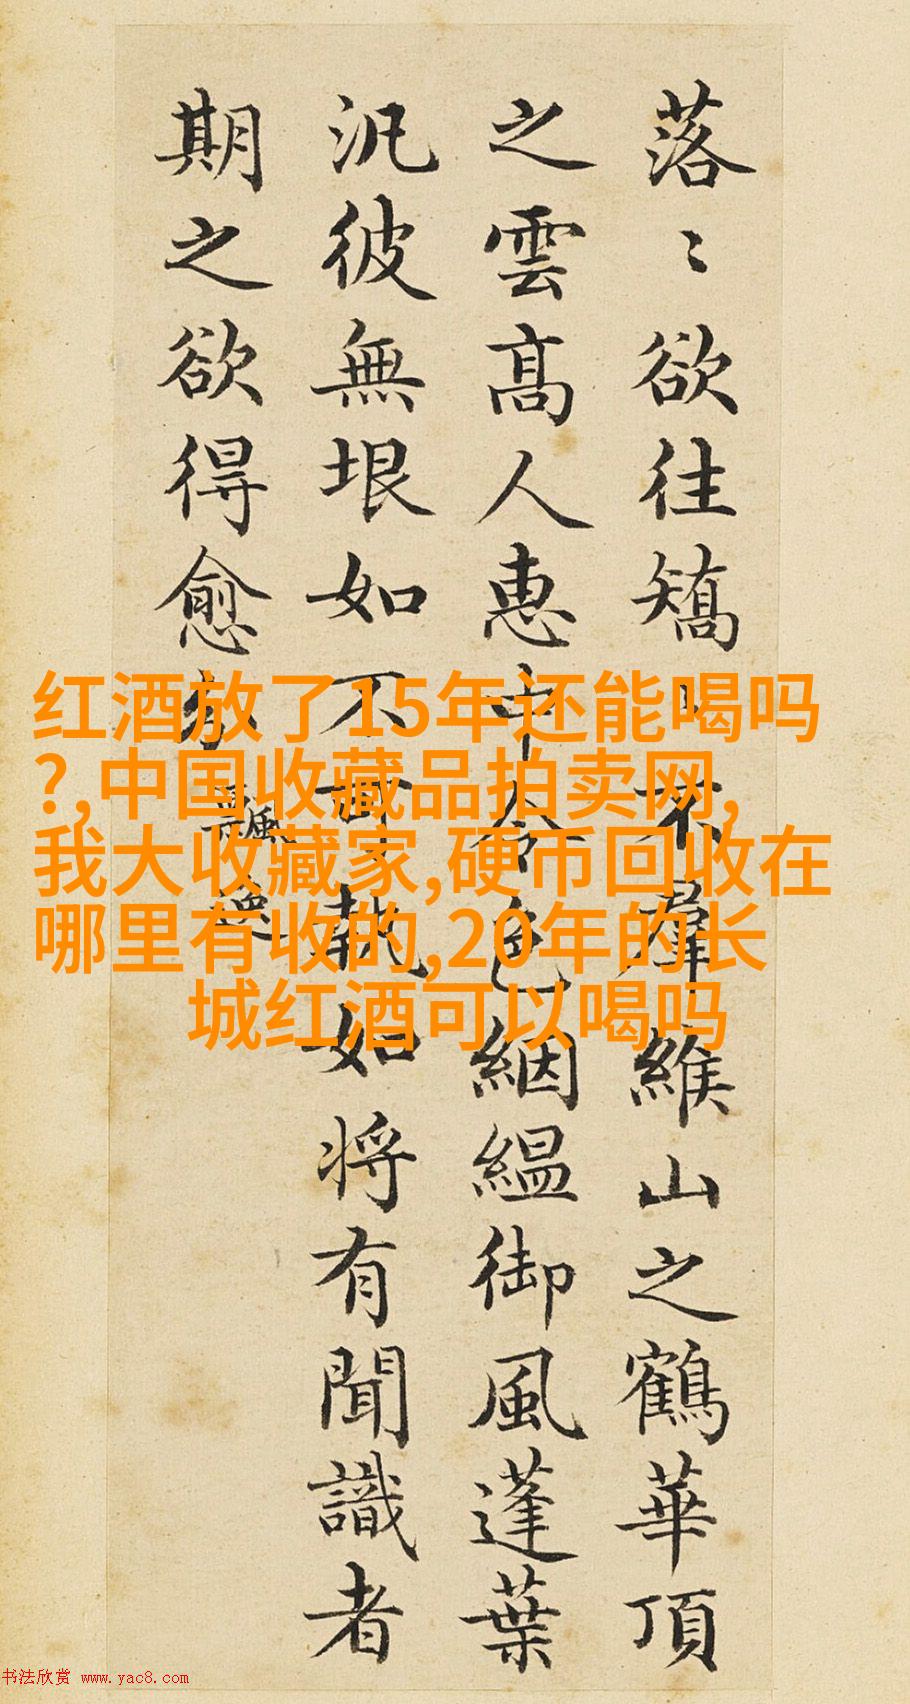 落〻欲往矯〻不羣緱山之鶴華頂
之雲髙人惠中令色絪緼御風蓬葉
汎彼無垠如不可執如将有聞識者
期之欲得愈分
飄逸
红酒放了15年还能喝吗
?,中国收藏品拍卖网,
我大收藏家,硬币回收在
哪里有收的,20年的长
城红酒可以喝吗
书法欣赏 www.yac8.com